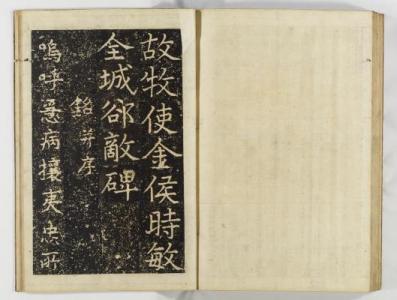 故牧使金侯時敏
全城郤敵碑
銘并序
嗚呼急病攘夷忠所